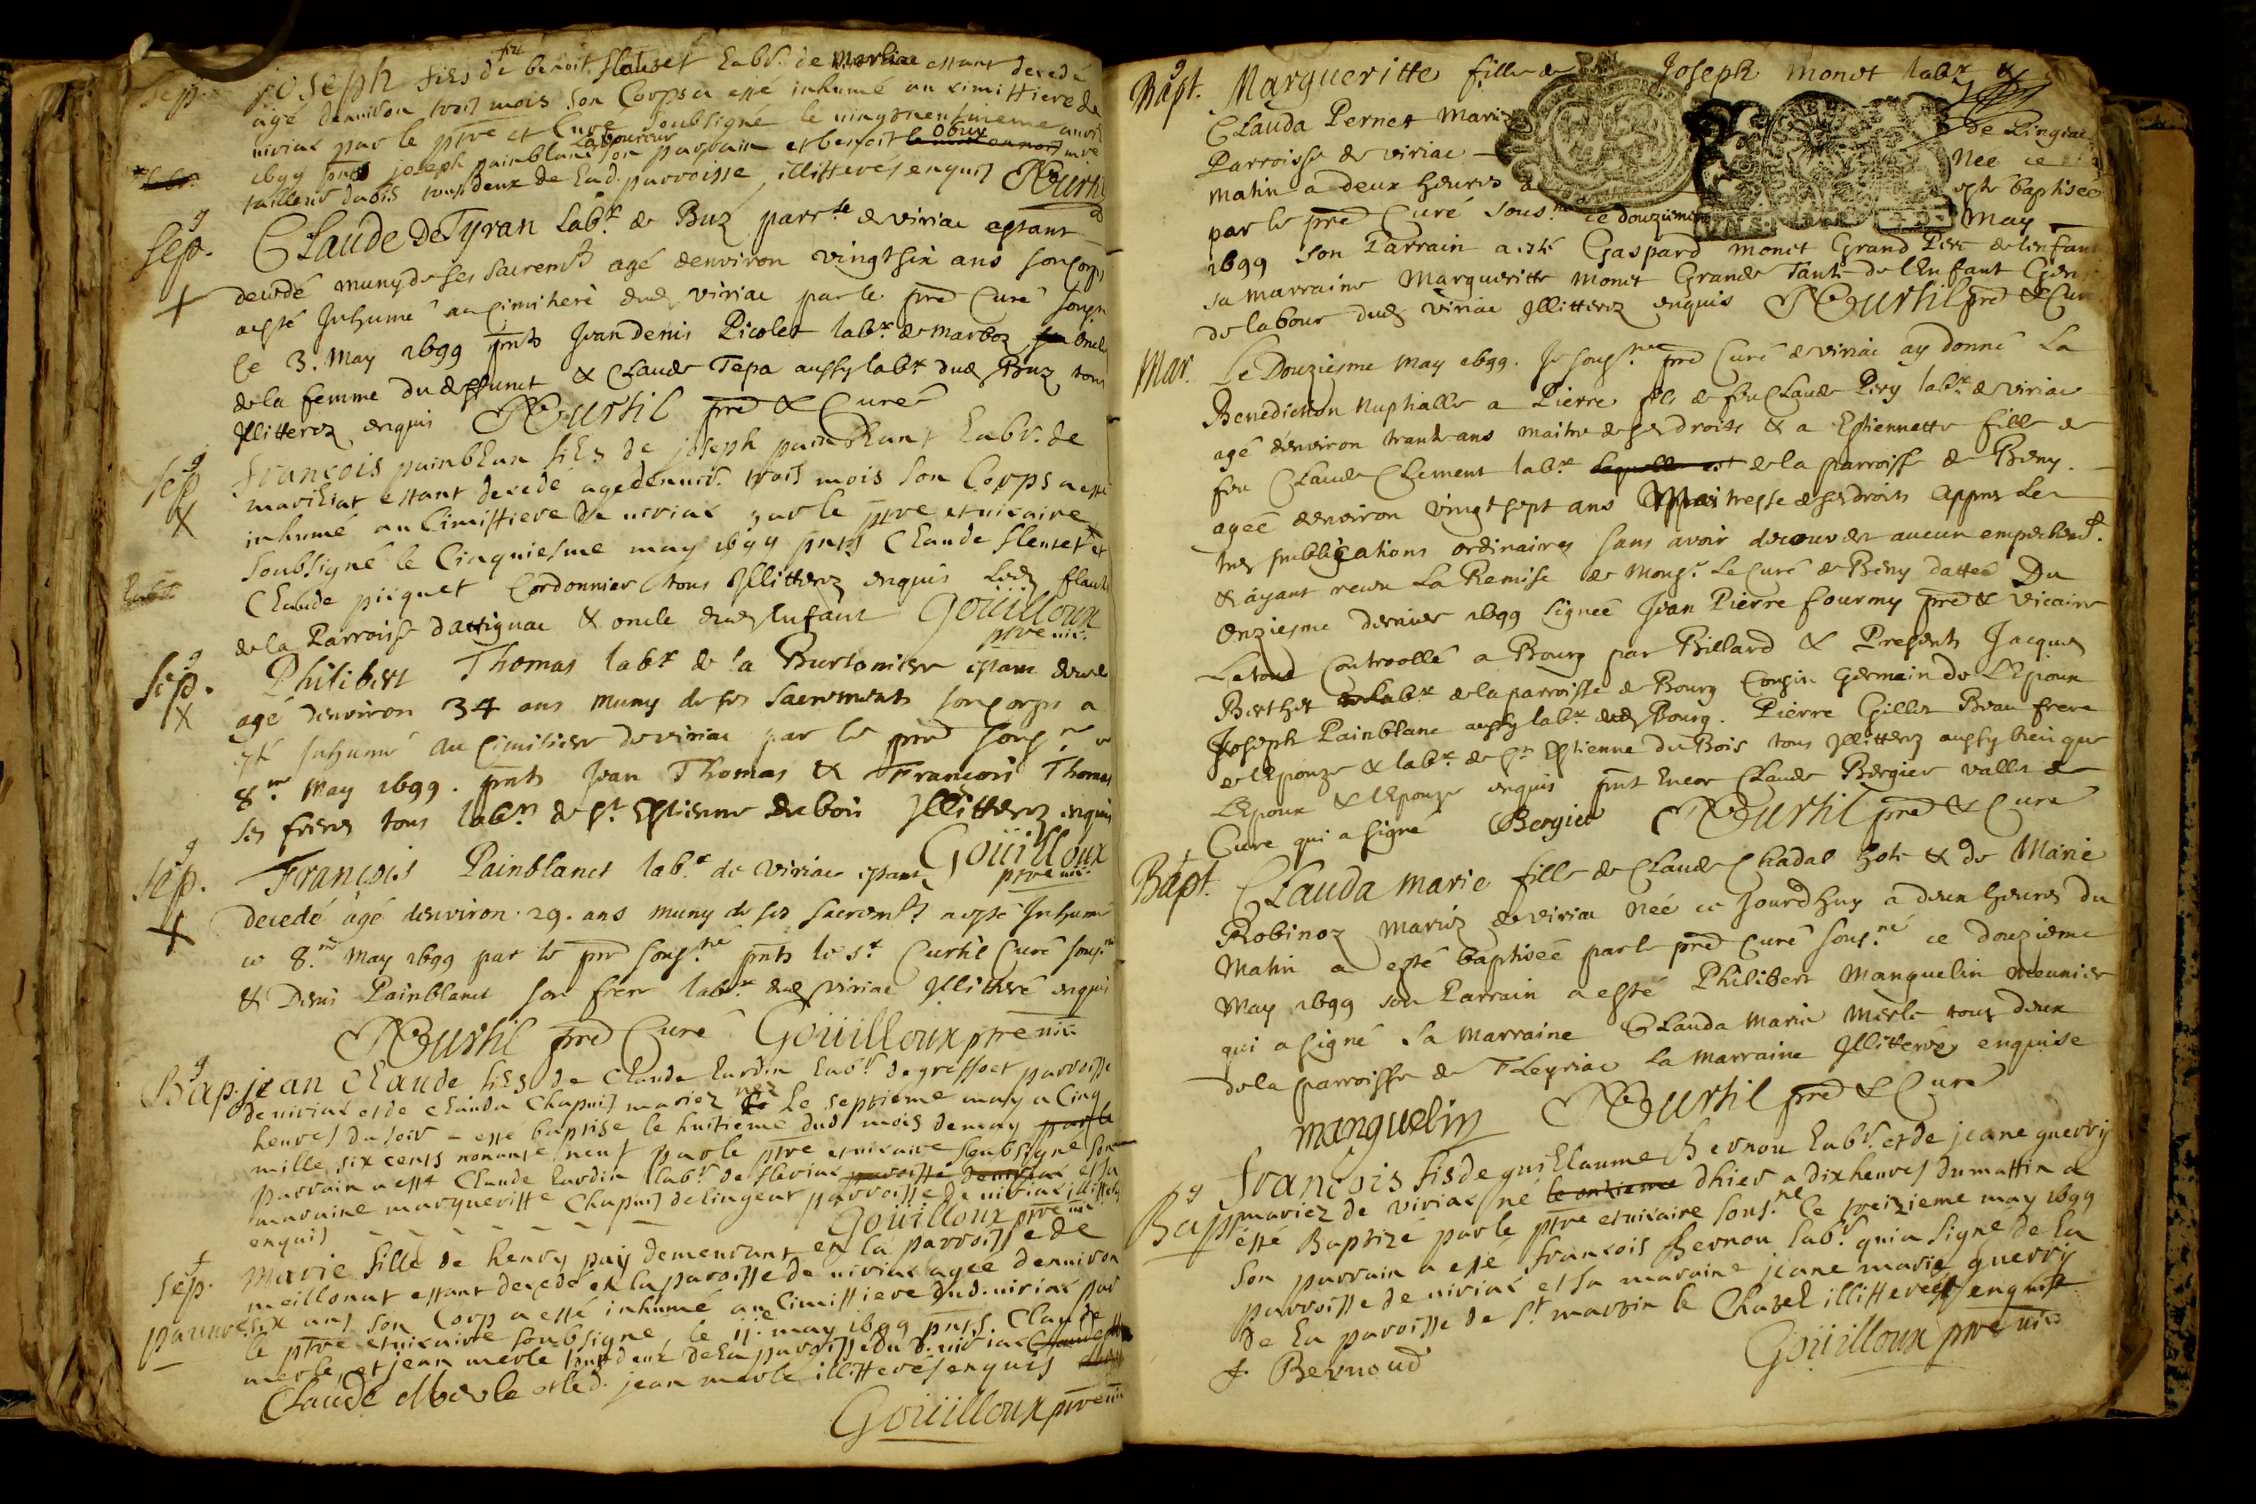 Sep. Joseph fils de feu benoit flauset Labr. de Marliac estant decedé
agé denviron trois mois son Corps a esté inhumé au cimittiere de
viriat par le ptre et Curé soubsigné le vingtneufvieme avril
1699 pnts joseph painblanc Laboureur son parrain et benoit
tailleur dabis tous deux de lad. parroisse, illitterés enquis NCurtil
g
Sep. Claude DeTyran Labr. de Buz parrsse de viriac estant
decedé muny de ses sacremts agé denviron vingt six ans son corps
a esté Inhumé au Cimitiere dud viriac par le pre Curé sousné
le 3. May 1699 pnts Jean denis Picolet labr. de marboz Oncle
de la femme du deffunct & Claude Tepa aussy labr. dud Buz tous
Illitterez enquis NCurtil pre & Curé
g
Sep François painblan fils de joseph painblanc Labr. de
X marliat estant decedé agé denvir. trois mois son Corps a esté
inhumé au Cimittiere de viriat par le ptre et vicaire
Soubsigné le Cinquiesme may 1699 pnts Claude fleuret et
Claude piquet Cordonnier tous Illitterez enquis led flaut
de la Parroisse dattignac & oncle dud Enfant Goüilloux
ptre vic.
g
Sep. Philibert Thomas labr de la Burtoniere estant decedé
X agé denviron 34 ans muny de ses sacrements son corps a
esté Inhumé au Cimitiere de viriac par le pre sousné ce
8me May 1699. pnts Jean Thomas & François Thomas
ses freres tous labrs de St Estienne du bois Illitterez enquis
Goüilloux
ptre vic.
g
Sep. François Painblanct labr de viriac estant
X decedé agé denviron 29. ans muny de ses sacremts a esté Inhumé
ce 8me May 1699 par le pre sousné pnts le Sr Curtil Curé sousné
& Denis Painblanct son frere labr. dud viriac Illitteré enquis
NCurtil pre Curé Goüilloux ptre vic
g
Bap. jean Claude fils de Claude Lurdin Labr. de greffoet parroisse
de viriat et de Clauda Chapuis mariez nez le septieme may a Cinq
heures du soir a esté baptisé le huitieme dud. mois de may
mille six cents nonante neuf par le ptre et vicaire soubsigné son
parrain a esté Claude Lurdin labr. de fleriat et sa
maraine margueritte Chapuis de lingeat parroisse de viriat illitterés
enquis Goüilloux ptre vic
f
Sep. Marie fille de henry paij demeurant en la parroisse de
pauvre meillonat estant decedé en la paroisse de viriat agee denviron
six ans son Corp a esté inhumé au Cimittiere dud. viriat par
le ptre et vicaire soubsigné, le 11e may 1699 pnts. Claude
merle, et jean merle tous deux de la parroisse dud. viriat
Claude Merle et led. jean merle illitterés enquis
Goüilloux ptre vic

g
Bapt. Margueritte fille de Joseph monet labr &
Clauda Pernet mariz de Lingeac
Parroisse de viriac — Née ce
matin a deux heures a esté baptisée
par le pre Curé sousné ce douzieme May
1699 son Parrain a esté Gaspard monet Grand Pere de lenfant
sa marraine Margueritte monet Grande Tante de lEnfant Gens
de labour dud viriac Illitterez enquis NCurtil pre & Curé
Mar. Le Douziesme May 1699. Je sousné pre Curé de viriac ay donné La
Benediction Nuptialle a Pierre fils de feu Claude Pery labr. de viriac
agé denviron trante ans maitre de ses droits & a Estiennette fille de
feu Claude Clement labr de la parroisse de Beny.
agée denviron vingt sept ans Maitresse de ses droits Appres les
trois publications ordinaires sans avoir decouvert aucun empechemt.
& ayant receu La Remise de Monsr Le Curé de Beny dattée Du
Onziesme dernier 1699 signée Jean Pierre fourmy pre & vicaire
Le tout Controollé a Bourg par Billard & Presents Jacques
Berthet labr de la parroisse de Bourg Cousin Germain de L'Epoux
Joseph Painblanc aussy labr dud Bourg. Pierre Gillet Beau frere
de lEpouze & labr de St Estienne du Bois tous Illitterez aussy bien que
LEpoux & lEpouze enquis pnt Encor Claude Bergier vallet de
Cure qui a signé Bergier NCurtil pre & Curé
f
Bapt. Clauda Marie fille de Claude Chadal hote & de Marie
Robinoz mariéz de viriac née ce Jourdhuy a deux heures du
Matin a esté baptisée par le pre Curé sousné ce douzieme
May 1699 son Parrain a esté Philibert Manguelin meunier
qui a signé Sa Marraine Clauda Marie Merle tous deux
de la parroisse de Fleyriac La Marraine Illitterée enquise
manguelin NCurtil pre & Curé
g
Bap françois fils de guillaume Bernou labr. et de jeane guerrij
mariez de viriat né dhier a dix heures du mattin a
été Baptizé par le ptre et vicaire sousné le treizieme may 1699
son parrain a esté francois Bernou labr. qui a signé de la
parroisse de viriat et sa maraine jeane marie guerrij
de la paroisse de St martin le Chatel illitterée enquise
Goüilloux ptre vic
f. Bernoud